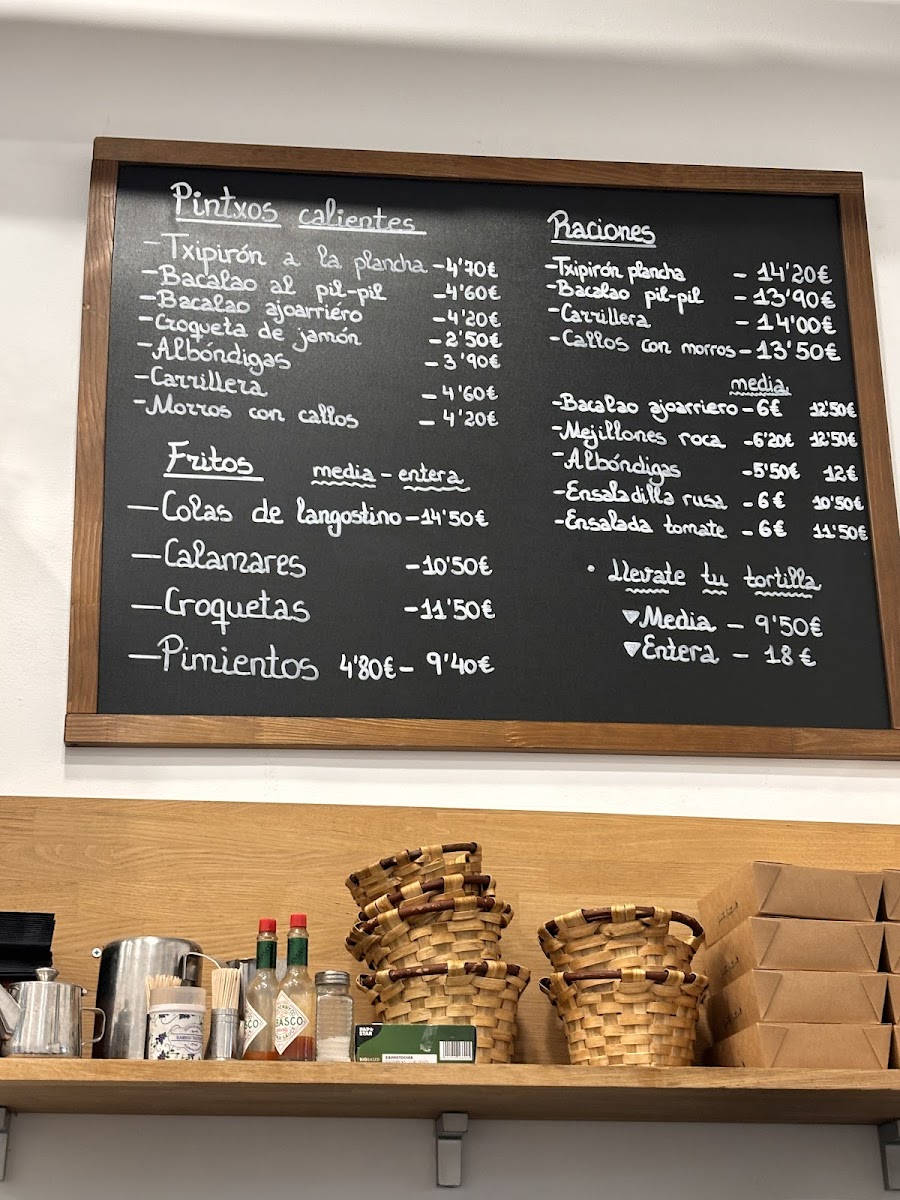 Pintxos calientes
-Txipirón a la plancha -4'70€
-Bacalao al pil-pil -4'60€
-Bacalao ajoarriero -4'20€
-Croqueta de jamón -2'50€
-Albóndigas -3'90€
-Carrillera -4'60€
-Morros con callos -4'20€
Fritos media - entera
-Colas de langostino -14'50€
-Calamares -10'50€
-Croquetas -11'50€
-Pimientos 4'80€ - 9'40€
Raciones
-Txipirón plancha -14'20€
-Bacalao pil-pil -13'90€
-Carrillera -14'00€
-Callos con morros -13'50€
media
-Bacalao ajoarriero -6€ 12'50€
-Mejillones roca -6'20€ 12'50€
-Albóndigas -5'50€ 12€
-Ensaladilla rusa -6€ 10'50€
-Ensalada tomate -6€ 11'50€
• Llevate tu tortilla
▼Media - 9'50€
▼Entera - 18€
BASCO
PAP★
STAR